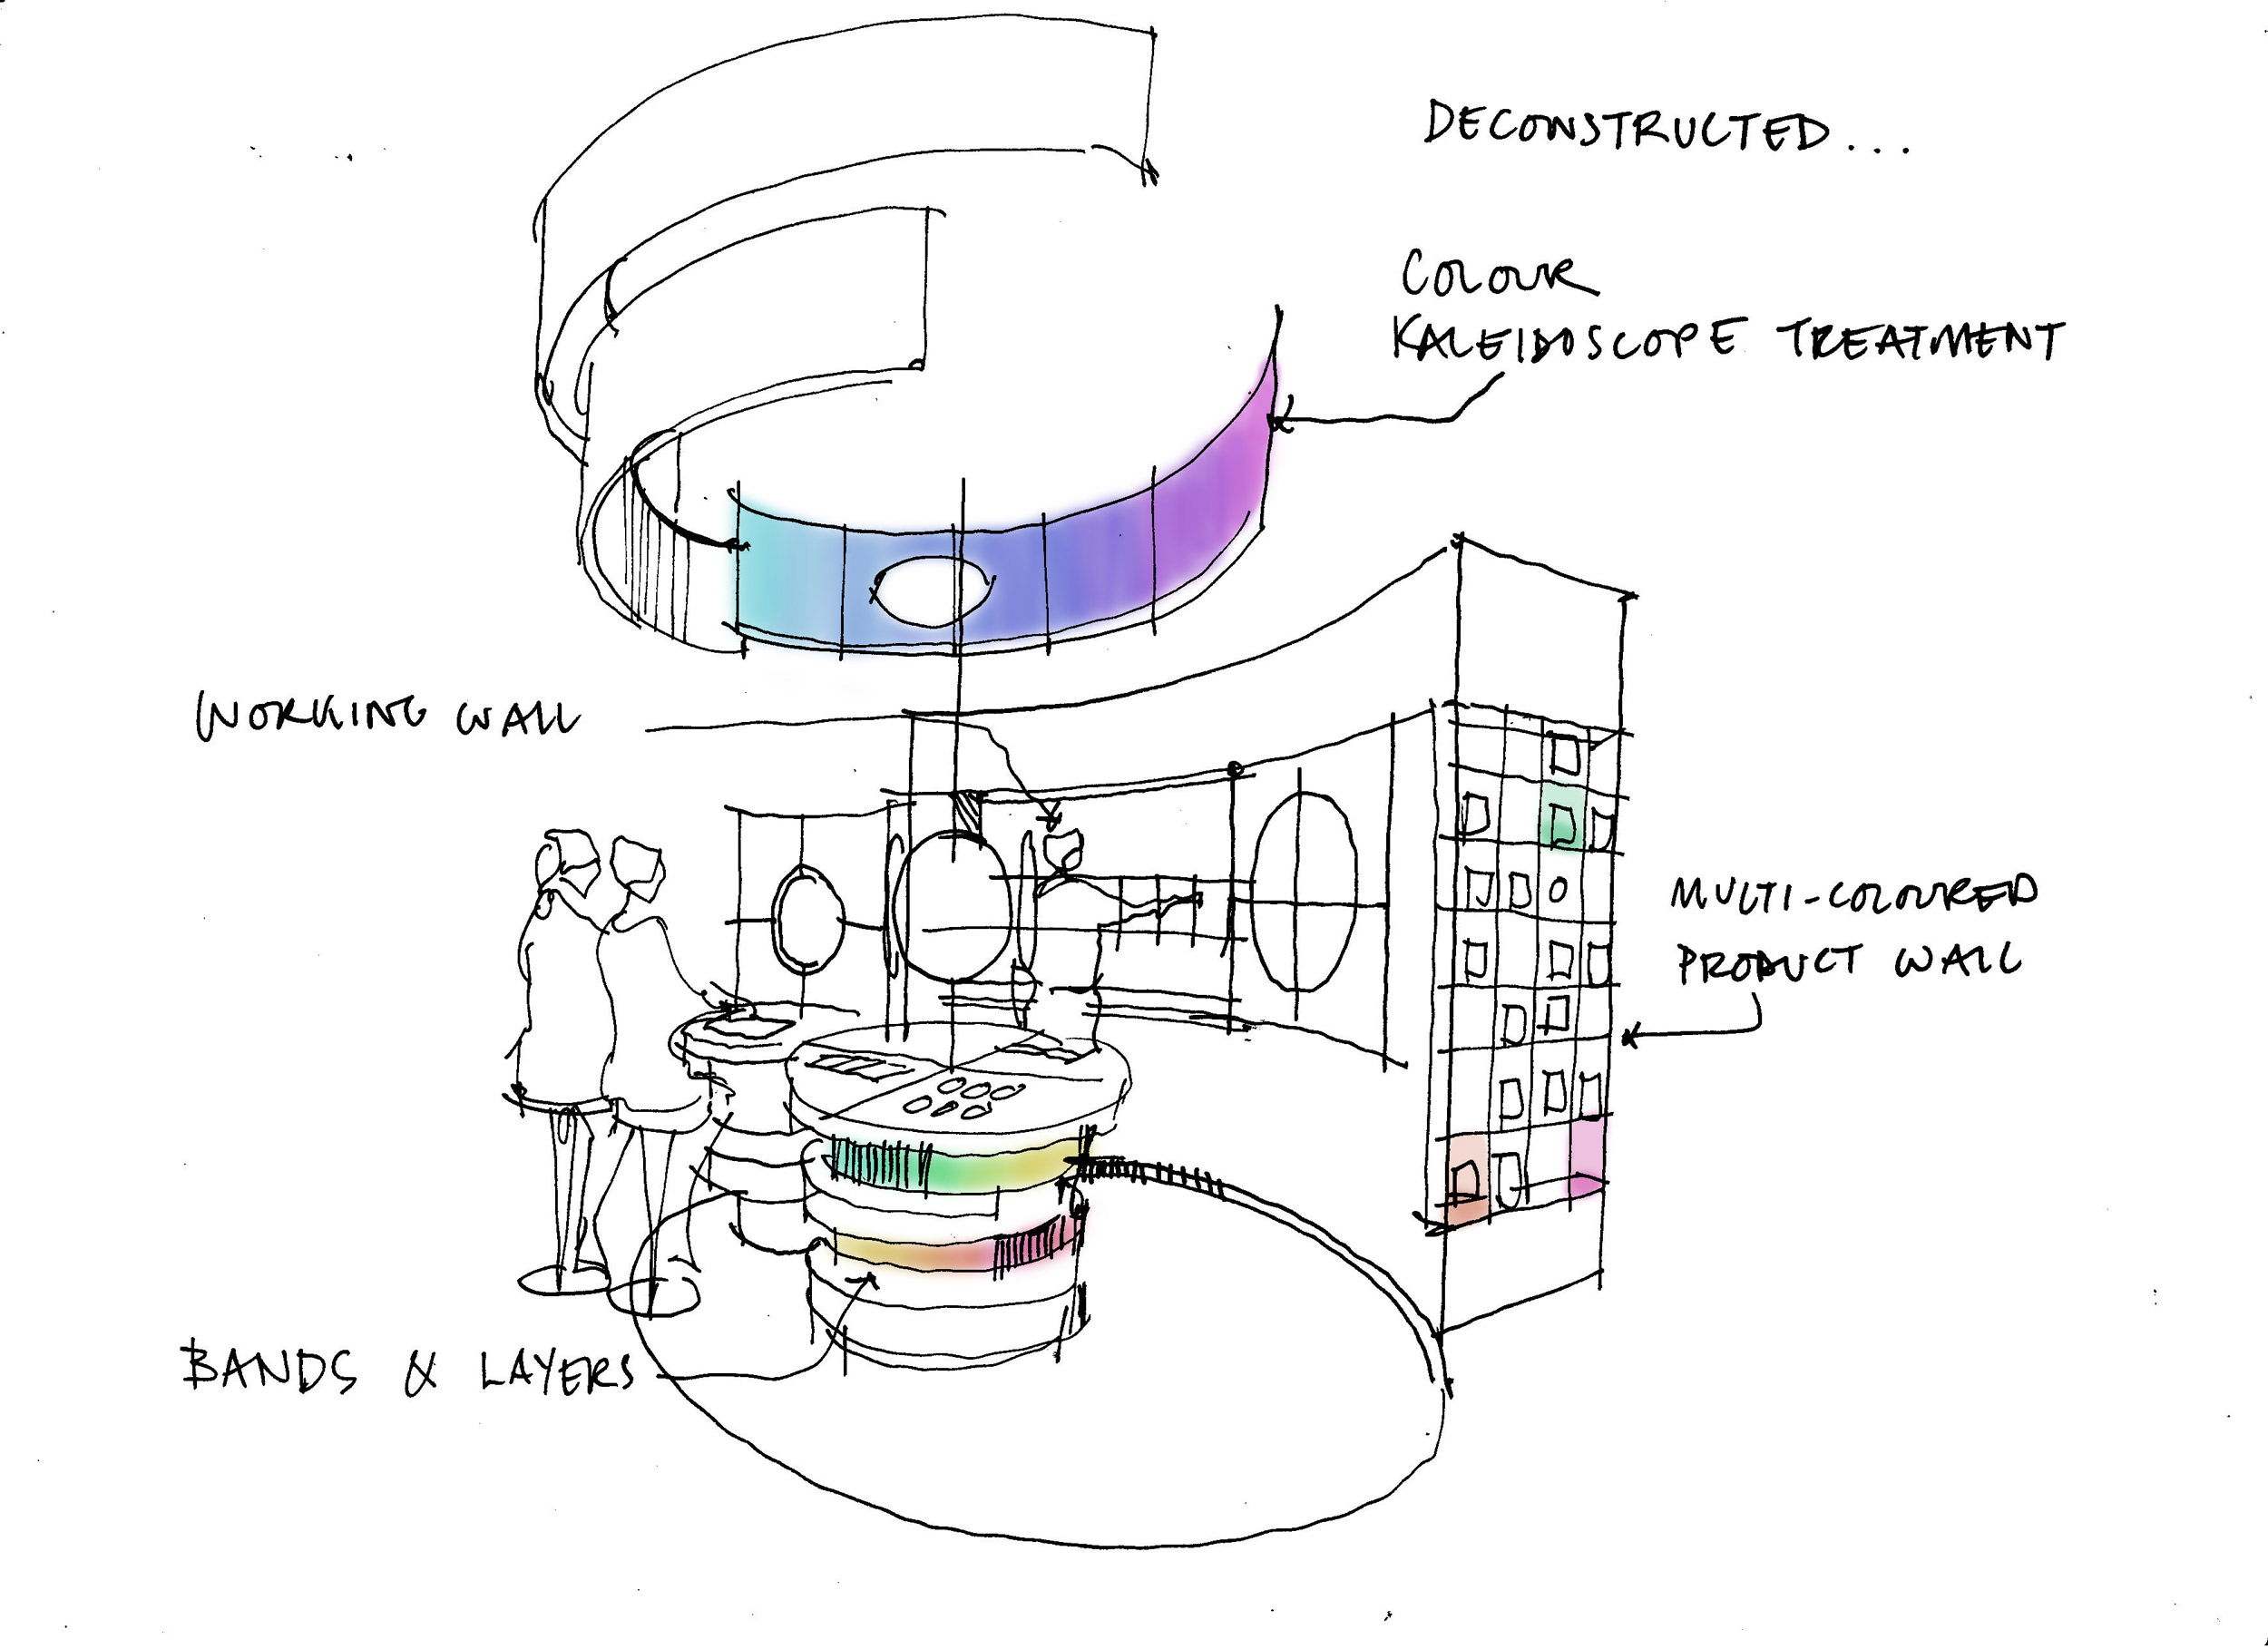 DECONSTRUCTED...
COLOUR
KALEIDOSCOPE TREATMENT
WORKING WALL
MULTI-COLOURED
PRODUCT WALL
BANDS & LAYERS